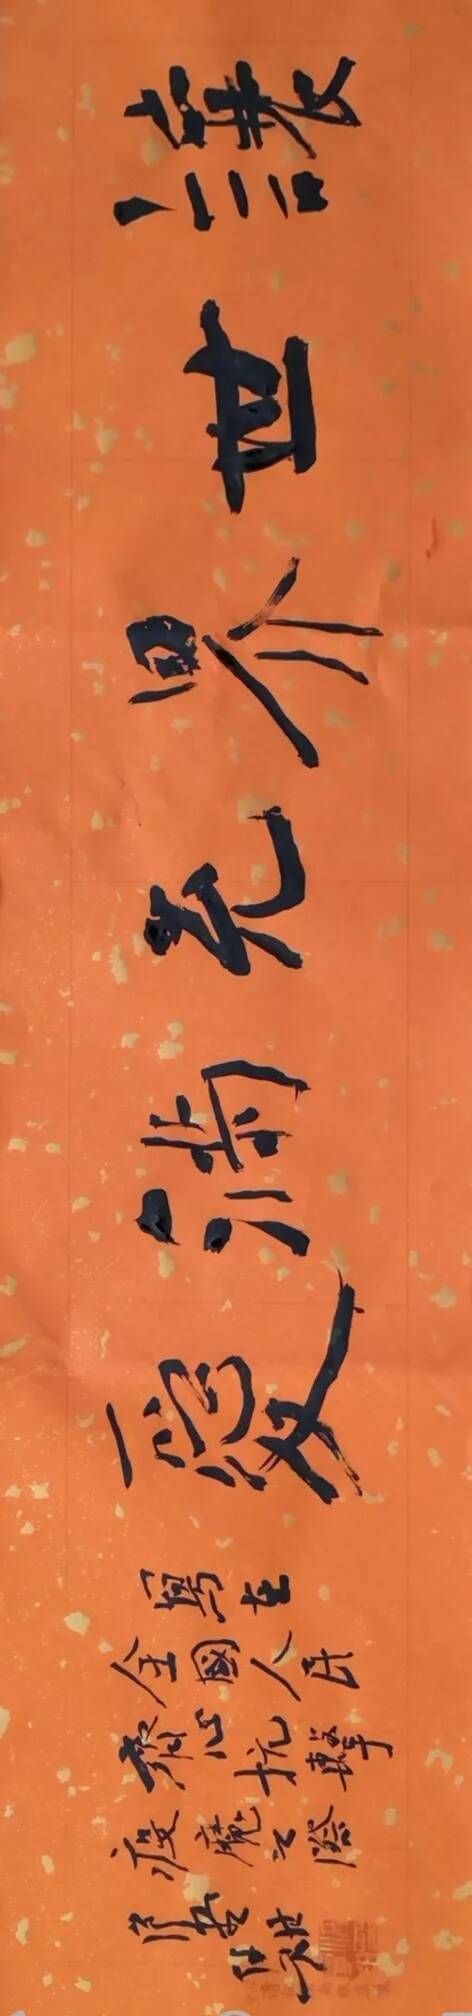 讓世界充滿愛
寫在
全國人民
齊心抗擊
疫魔之際